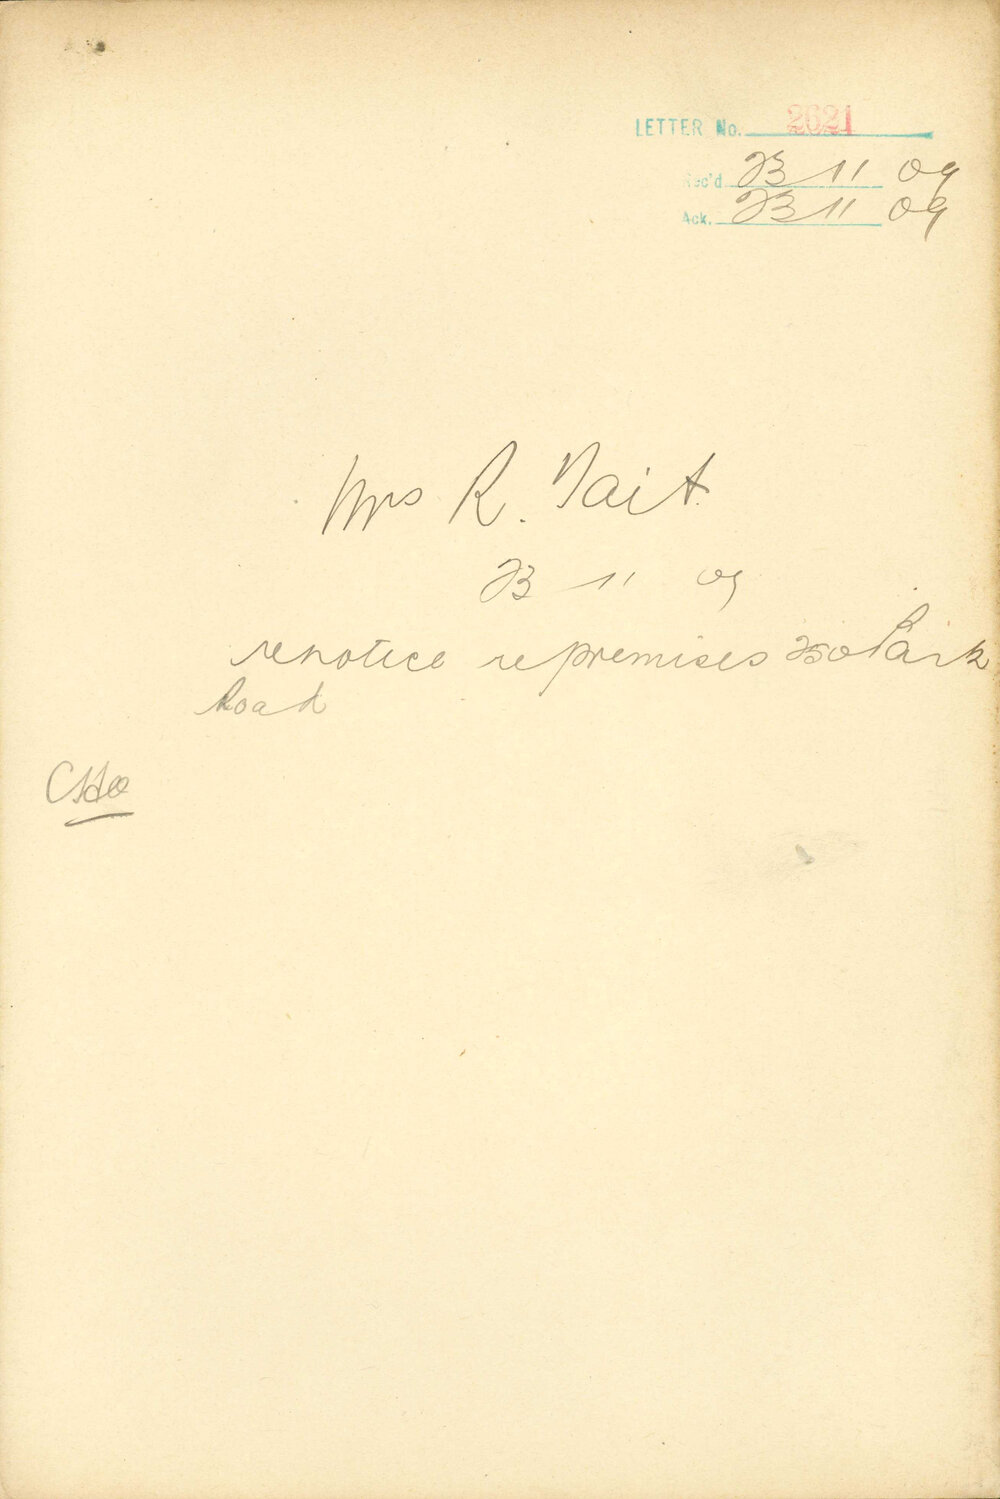 LETTER No. 2621
Rec'd 23 11 09
Ack. 23 11 09
Mrs R. Tait.
23 11 09
re notice re premises 250 Park
Road